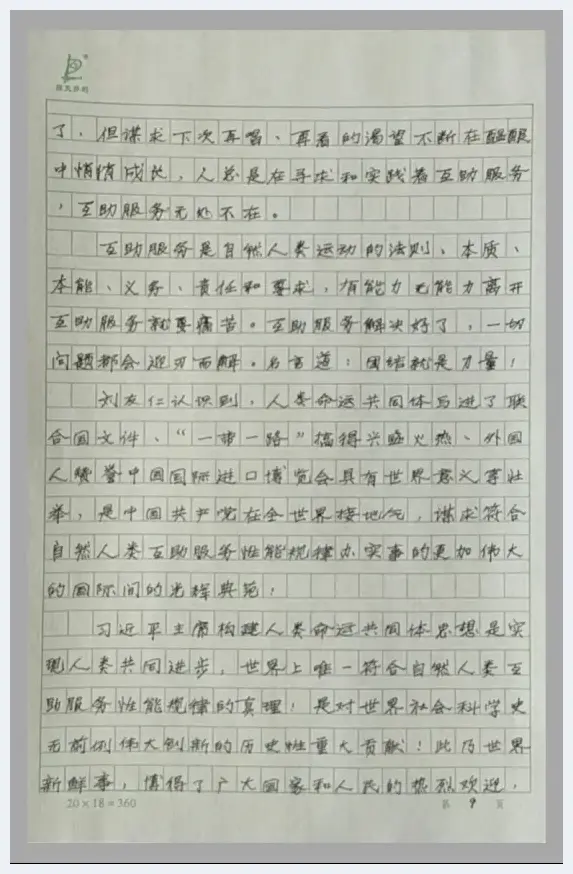 了，但谋求下次再唱、再看的渴望不断在醖酿
中悄悄成长，人总是在寻求和实践着互助服务
，互助服务无处不在。
互助服务是自然人类运动的法则、本质、
本能、义务、责任和要求，有能力无能力离开
互助服务就要痛苦。互助服务解决好了，一切
问题都会迎刃而解。名言道：团结就是力量！
刘友仁认识则，人类命运共同体写进了联
合国文件、“一带一路”搞得兴旺火热、外国
人赞誉中国国际进口博览会具有世界意义等壮
举，是中国共产党在全世界接地气，谋求符合
自然人类互助服务性能规律办实事的更加伟大
的国际间的光辉典范！
习近平主席构建人类命运共同体思想是实
现人类共同进步，世界上唯一符合自然人类互
助服务性能规律的真理！是对世界社会科学史
无前例伟大创新的历史性重大贡献！此乃世界
新鲜事，博得了广大国家和人民的热烈欢迎，
20×18=360
第 9 页